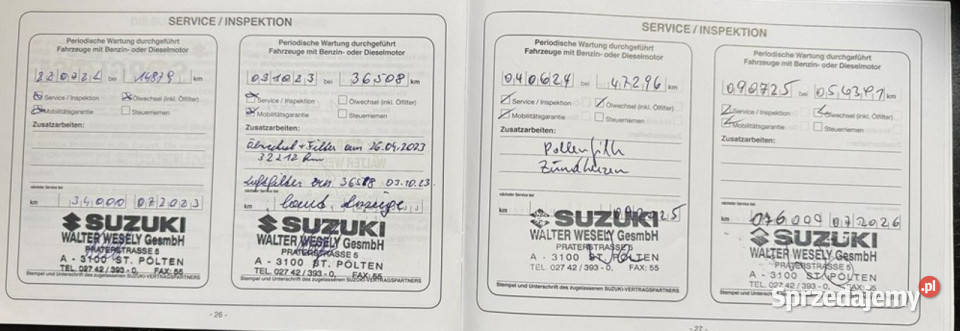 SERVICE / INSPEKTION
Periodische Wartung durchgeführt
Fahrzeuge mit Benzin- oder Dieselmotor
bei km
Service / Inspektion Ölwechsel (inkl. Ölfilter)
Mobilitätsgarantie Steuerriemen
Zusatzarbeiten:
nächster Service bei
km 34000 072023
SUZUKI
WALTER WESELY GesmbH
PRATERSTRASSE 5
A - 3100 ST. PÖLTEN
TEL. 027 42 / 393 - 0, FAX: 55
Stempel und Unterschrift des zugelassenen SUZUKI-VERTRAGSPARTNERS
Periodische Wartung durchgeführt
Fahrzeuge mit Benzin- oder Dieselmotor
031023 bei 36508 km
Service / Inspektion Ölwechsel (inkl. Ölfilter)
Mobilitätsgarantie Steuerriemen
Zusatzarbeiten:
Ölwechsel + Filter am 26.04.2023
32212 km
Luftfilter 36508 03.10.23
nächster Service bei
laut Anzeige
SUZUKI
WALTER WESELY GesmbH
PRATERSTRASSE 5
A - 3100 ST. PÖLTEN
TEL. 027 42 / 393 - 0, FAX: 55
Stempel und Unterschrift des zugelassenen SUZUKI-VERTRAGSPARTNERS
- 26 -
SERVICE / INSPEKTION
Periodische Wartung durchgeführt
Fahrzeuge mit Benzin- oder Dieselmotor
040624 bei 47296 km
Service / Inspektion Ölwechsel (inkl. Ölfilter)
Mobilitätsgarantie Steuerriemen
Zusatzarbeiten:
Pollenfilter
Zündkerzen
nächster Service bei
km
SUZUKI
WALTER WESELY GesmbH
PRATERSTRASSE 5
A - 3100 ST. PÖLTEN
TEL. 027 42 / 393 - 0, FAX: 55
Stempel und Unterschrift des zugelassenen SUZUKI-VERTRAGSPARTNERS
Periodische Wartung durchgeführt
Fahrzeuge mit Benzin- oder Dieselmotor
090725 bei km
Service / Inspektion Ölwechsel (inkl. Ölfilter)
Mobilitätsgarantie Steuerriemen
Zusatzarbeiten:
nächster Service bei
072026
SUZUKI
WALTER WESELY GesmbH
PRATERSTRASSE 5
A - 3100 ST. PÖLTEN
TEL. 027 42 / 393 - 0, FAX: 55
Stempel und Unterschrift des zugelassenen SUZUKI-VERTRAGSPARTNERS
- 27 -
Sprzedajemy.pl